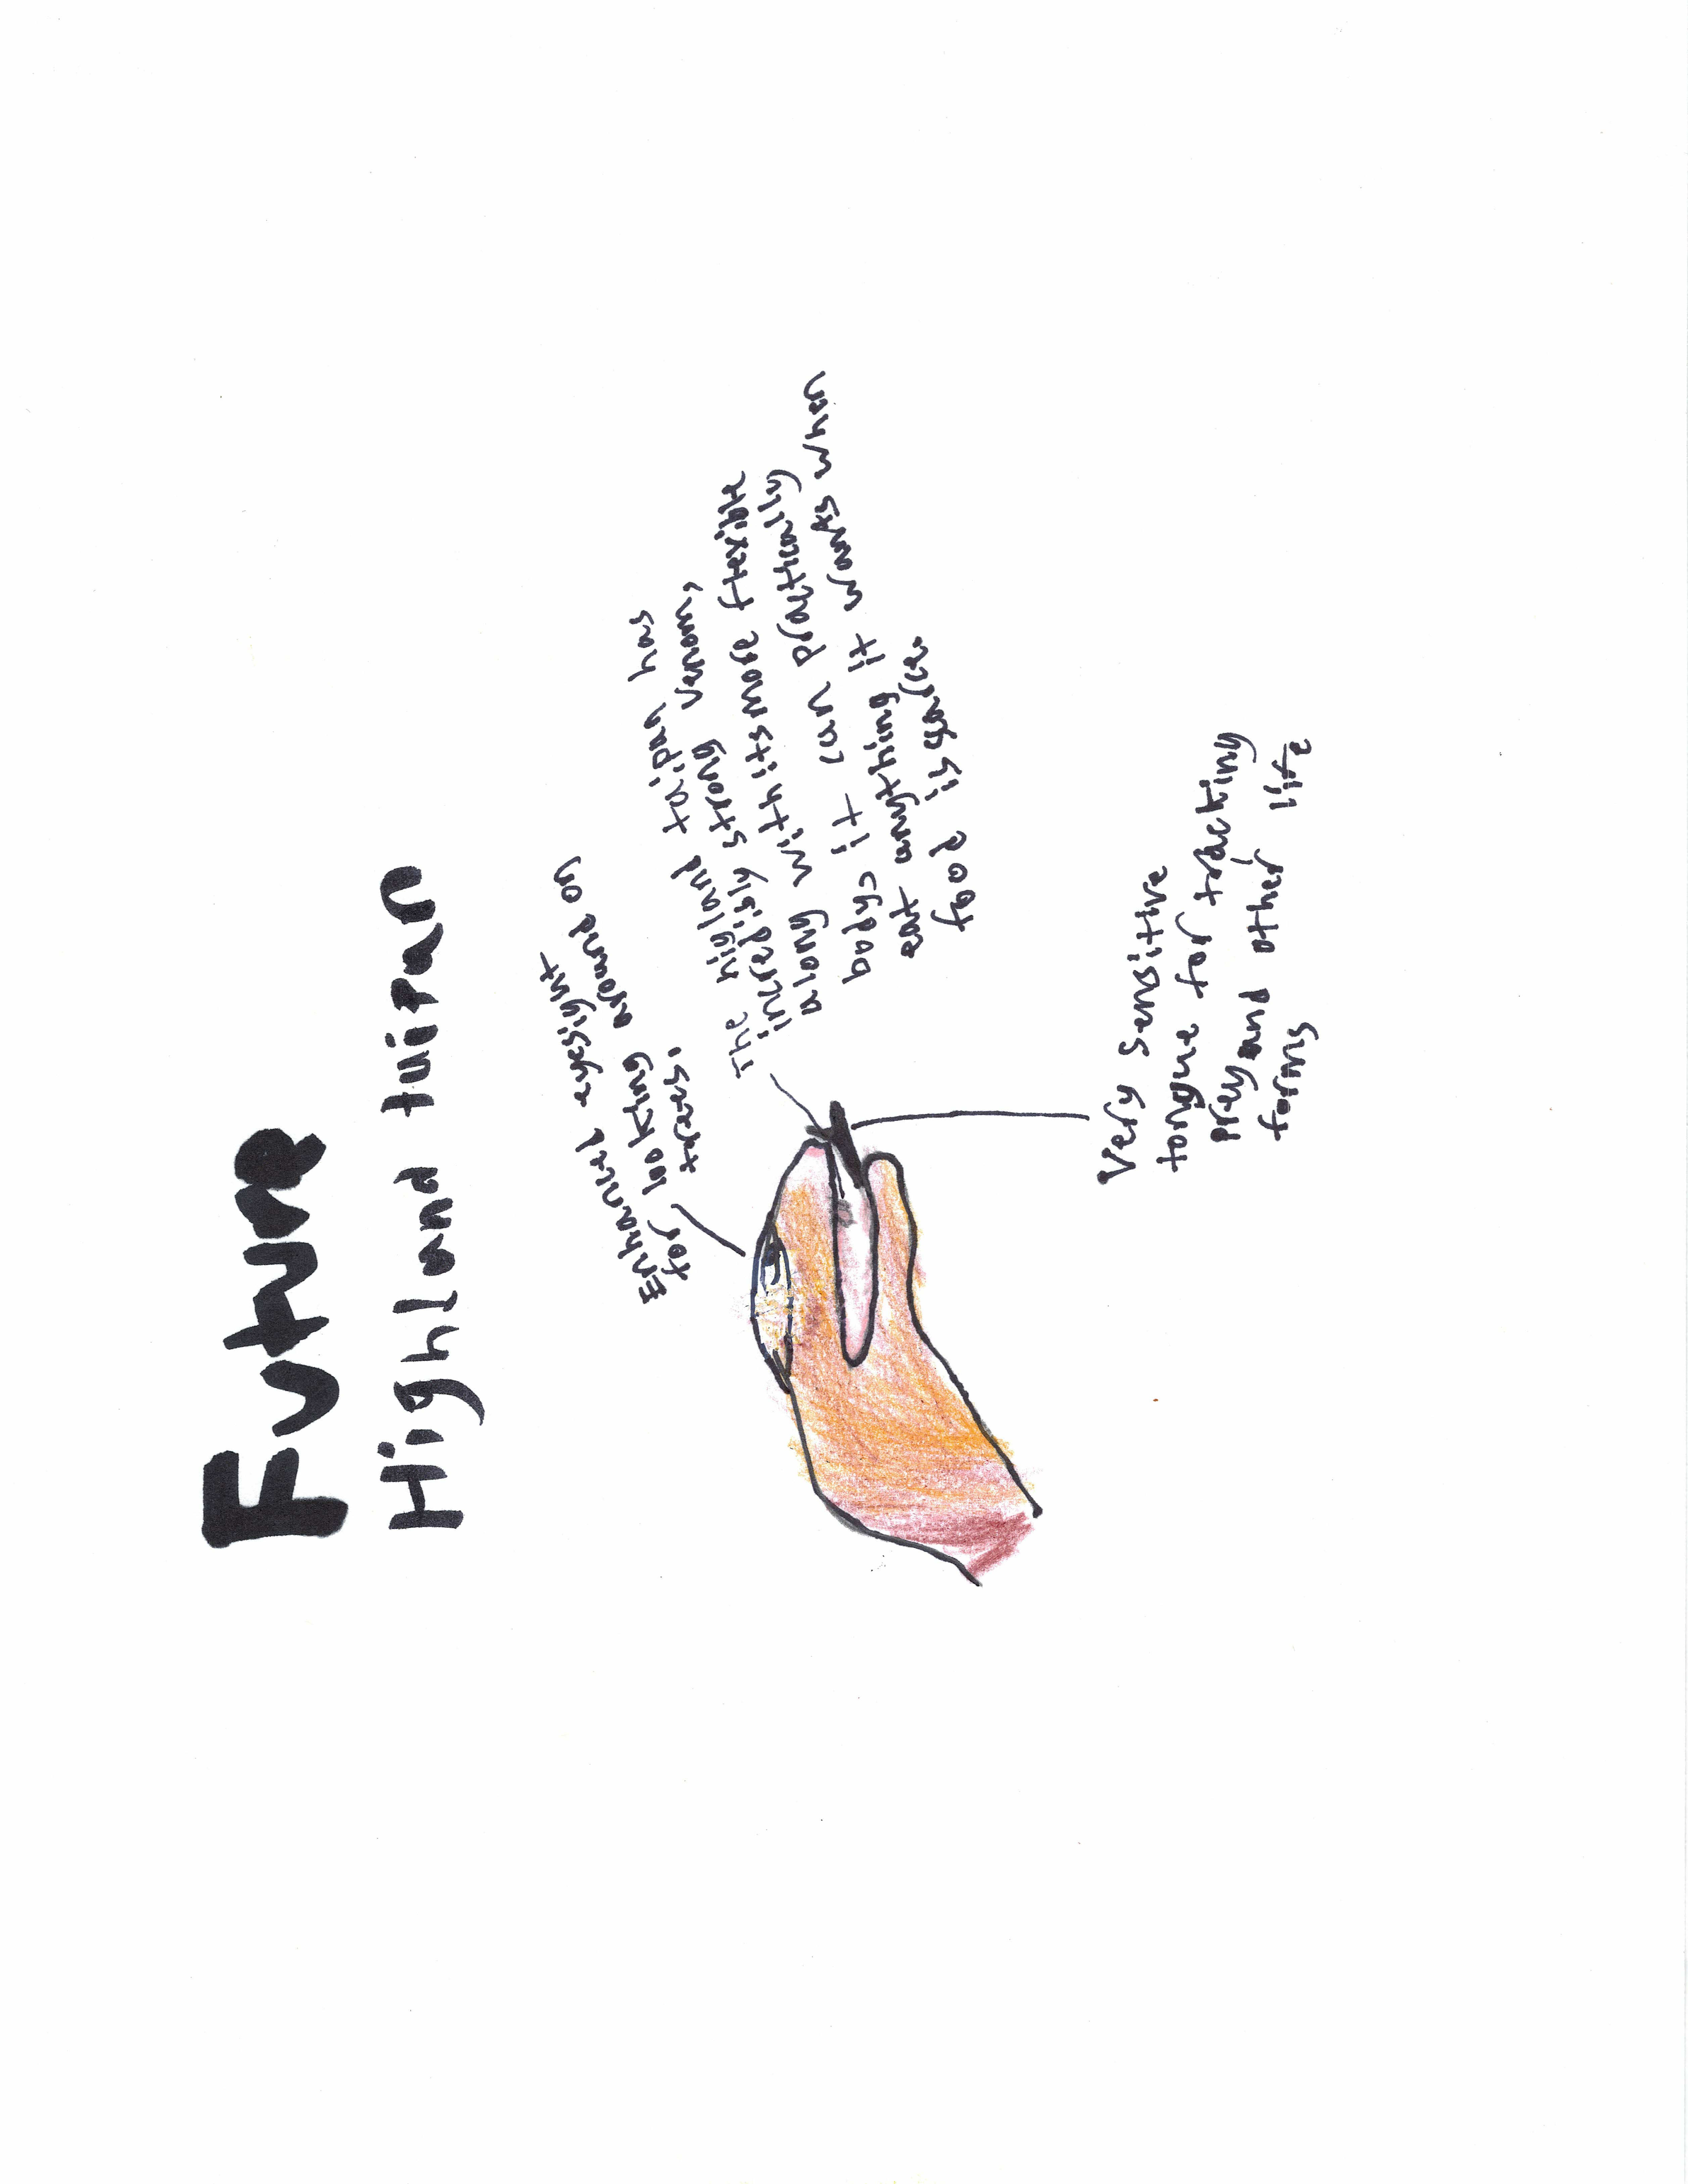 Future
Highland taipan
Enhanced eyesight
for looking around on
trees.
The higland taipan has
incredibly strong venom,
along with its more flexible
body, it can practically
eat anything it wants when
food is scarce.
Very sensitive
tongue for tracking
prey and other life
forms